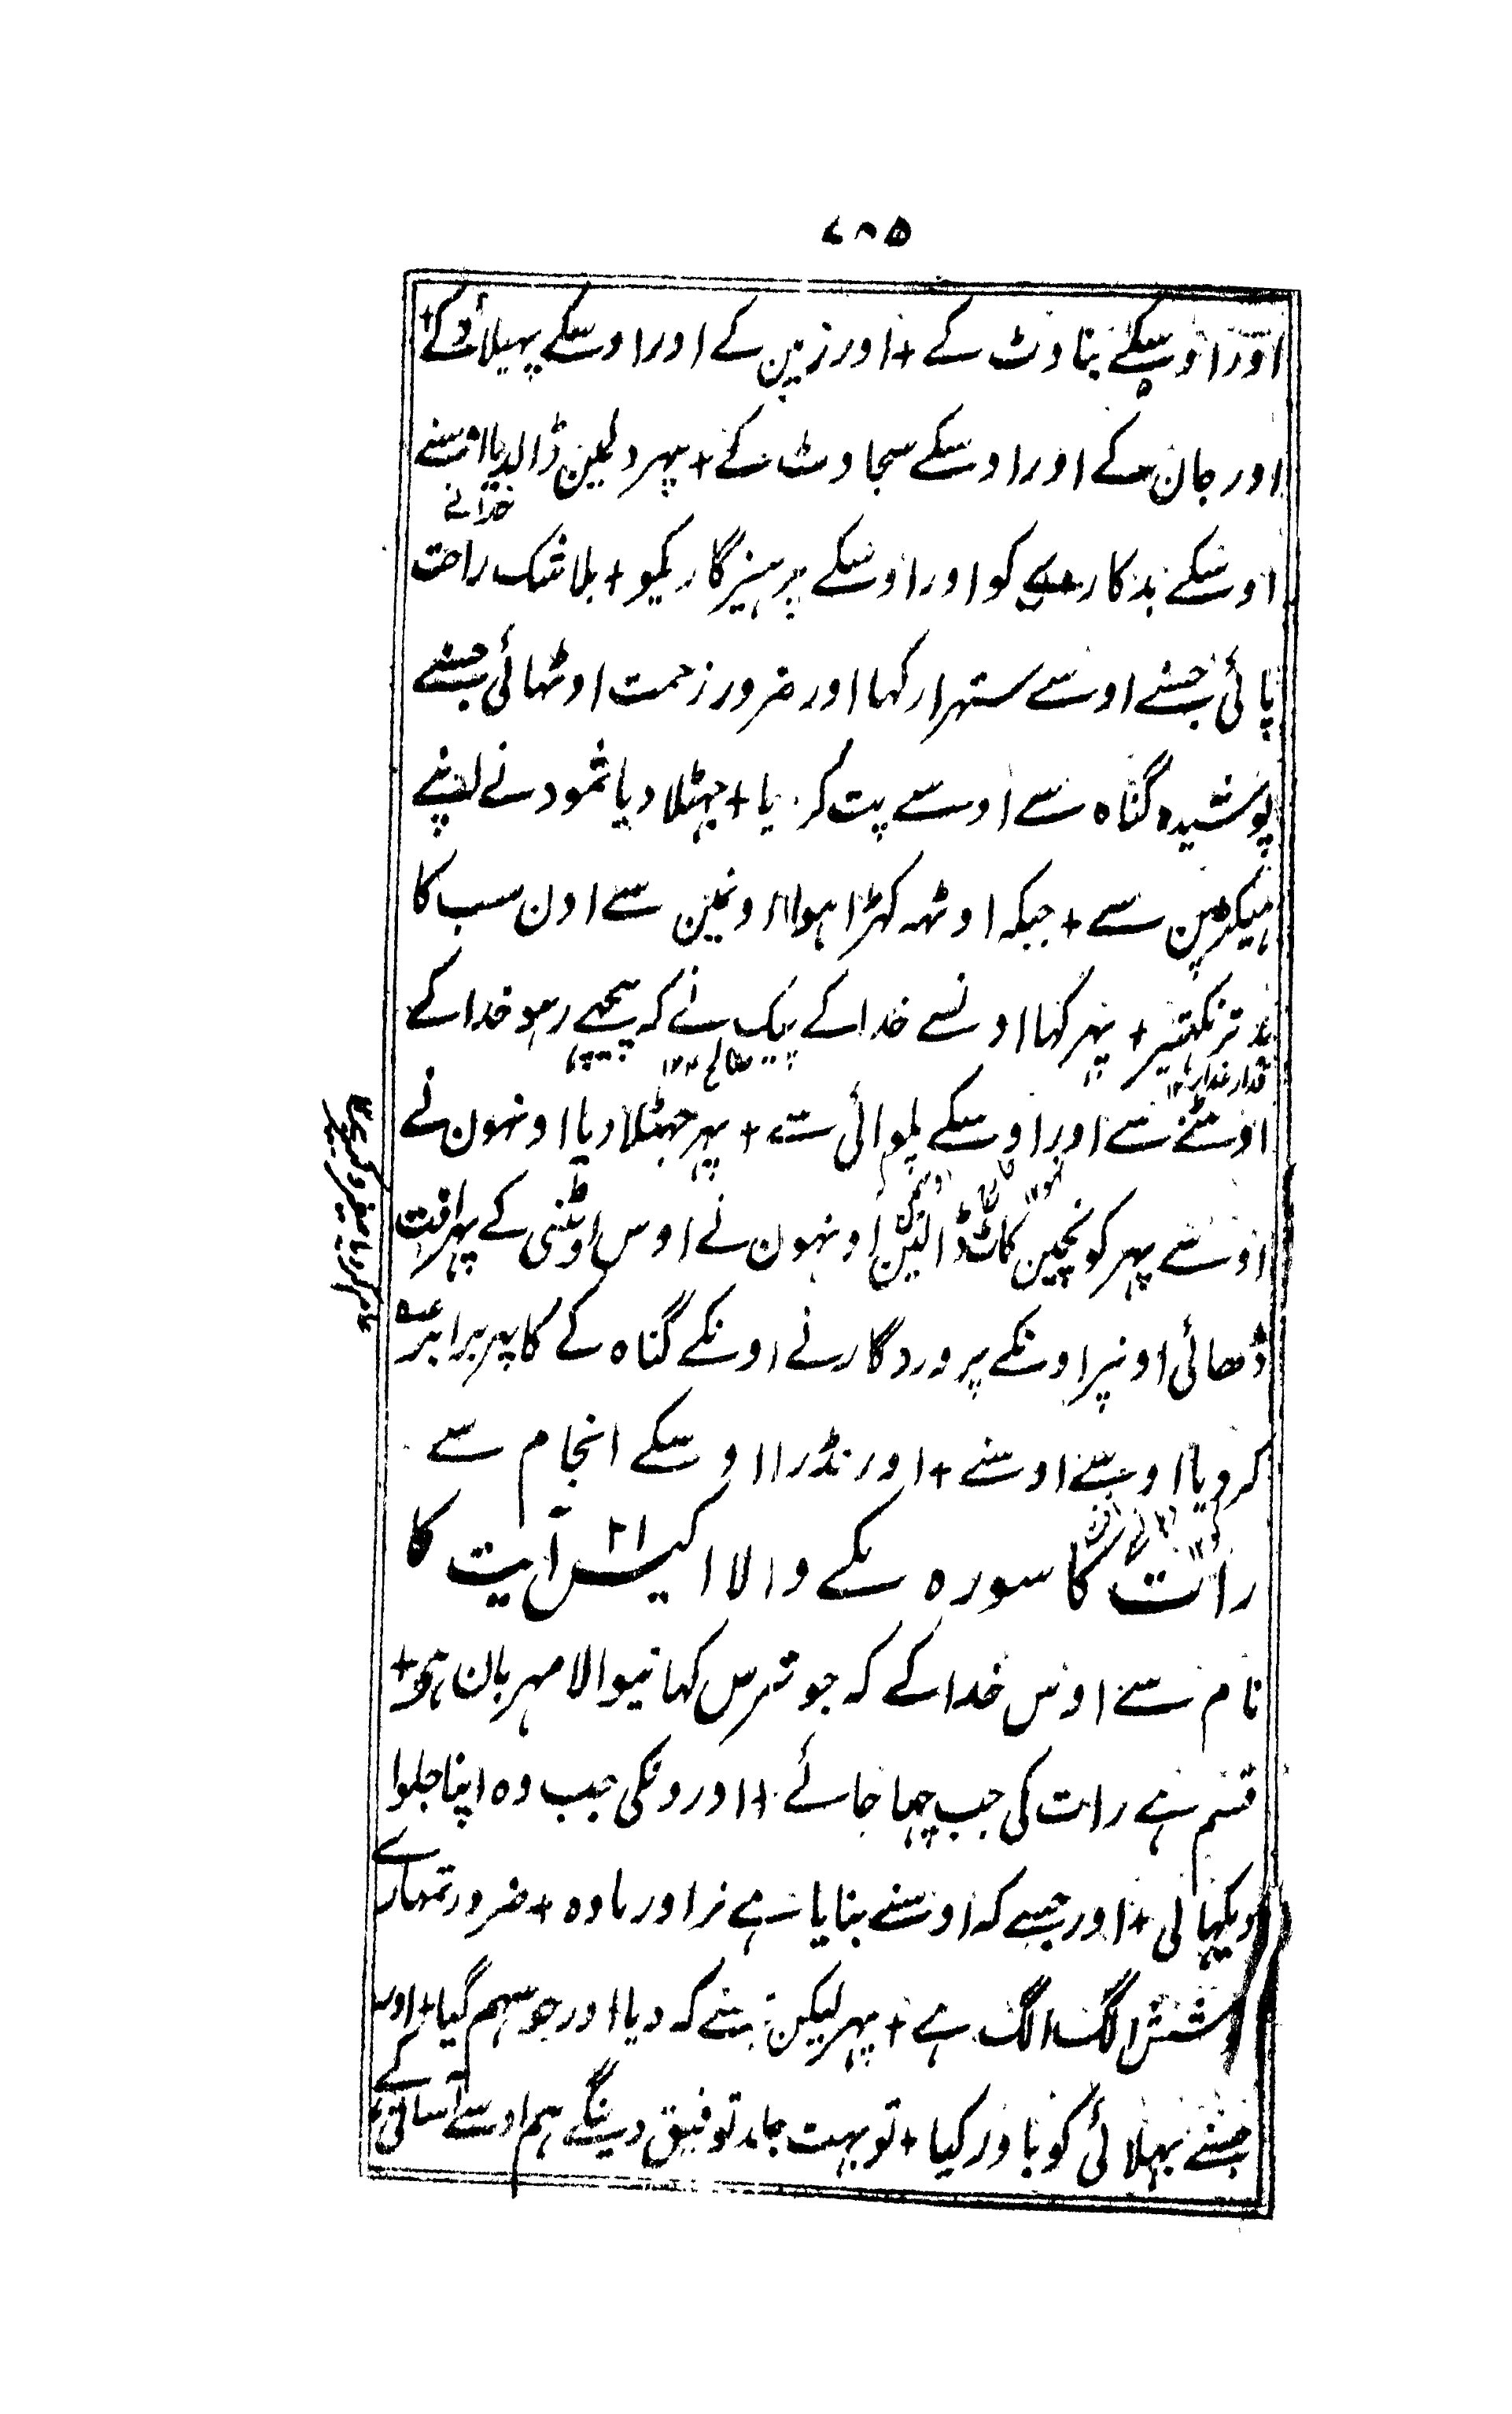 ۷۸۵
اور اوسکے بناوٹ کے + اور زمین کے اور اوسکے پہیلائو کے +
اور جان کے اور اوسکے سجاوٹ کے + پہر دلمین ڈالدیا اوسنے
خدا نے
اوسکے بدکاری کو اور اوسکے پرہیزگاریکو + بلاشک راحت
پائی جسنے اوسے ستہرا رکہا اور ضرور زحمت اوٹہائی جسنے
پوشیدہ گناہ سے اوسے پت کر یا + جہٹلا دیا ثمود نے اپنے
ہیکڑپن سے + جبکہ اوٹہہ کہڑا ہوا اونمین سے اون سب کا
بد تر نکہتیر + پہر کہا اونسے خدا کے پیک نے کہ پیچہے رہو خدا کے
قدار غدار ۱۲
صالح ۱۲
اونٹنے سے اور اوسکے پلوائی سے + پہر جہٹلا دیا اونہون نے
اوسے پہر کونچین کاٹ ڈالین اونہون نے اوس اونٹنی کے پہر آفت
ڈھائی اونپر اونکے پروردگار نے اونکے گناہ کے کا پہر برابر
کر دیا اوسے اوسنے + اور نڈرا اوسکے انجام سے
رات کا سورہ مکے والا اکیس ۲۱ آیت کا
نام سے اوس خدا کے کہ جو ترس کہانیوالا مہربان ہی +
قسم ہے رات کی جب چہا جائے + اور دنکی جب وہ اپنا جلوا
دیکہا لی + اور جسے کہ اوسنے بنایا ہے نر اور مادہ + ضرور تمہارے
کوشش الگ الگ ہے + پہر لیکن جسنے کہ دیا اور جو سہم گیا + اور
جسنے بہلائی کو باور کیا + تو بہت جلد توفیق دینگے ہم اوسے آسانی کے